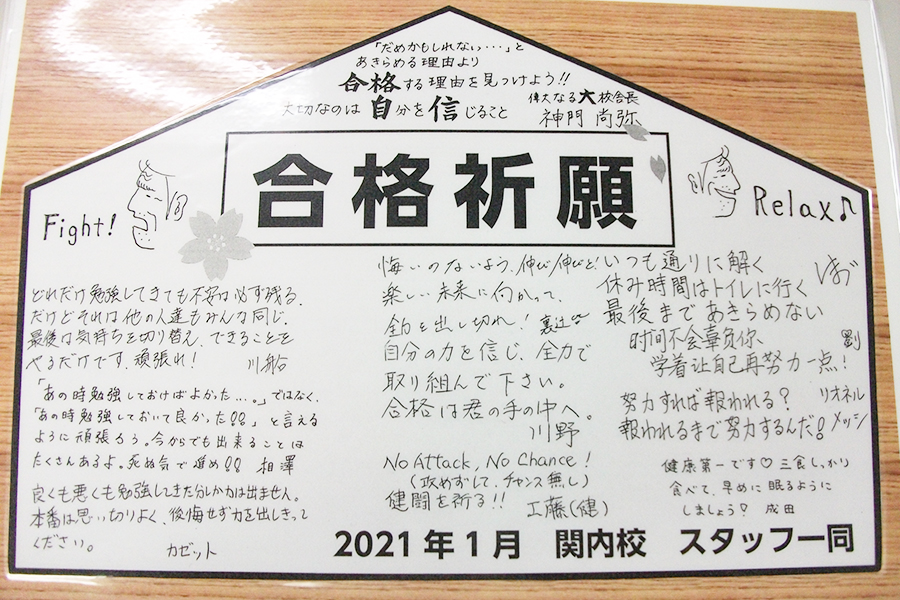 「だめかもしれない…」と
あきらめる理由より
合格する理由を見つけよう!!
大切なのは自分を信じること
偉大なる大校舎長
神門 尚弥
合格祈願
Fight!
Relax♪
どれだけ勉強してきても不安は必ず残る、
だけどそれは他の人達もみんな同じ、
最後は気持ちを切り替え、できることを
やるだけです、頑張れ!
川船
「あの時勉強しておけばよかった...。」ではなく、
「あの時勉強しておいて良かった!!」と言える
ように頑張ろう。今からでも出来ることは
たくさんあるよ。死ぬ気で進め!! 相澤
良くも悪くも勉強してきた分しか力は出ません。
本番は思い切りよく、後悔せず力を出しきって
ください。
カゼット
悔いのないよう、伸び伸びと!
楽しい未来に向かって、
全力を出し切れ!
自分の力を信じ、全力で
取り組んで下さい。
合格は君の手の中へ。
川野
No Attack, No Chance!
(攻めずして、チャンス無し)
健闘を祈る!!
工藤(健)
いつも通りに解く
休み時間はトイレに行く
最後まであきらめない
时间不会辜负你
学着让自己再努力一点!
劉
努力すれば報われる?
報われるまで努力するんだ!
リオネル
メッシ
健康第一です♡ 三食しっかり
食べて、早めに眠るように
しましょう! 成田
2021年1月 関内校 スタッフ一同